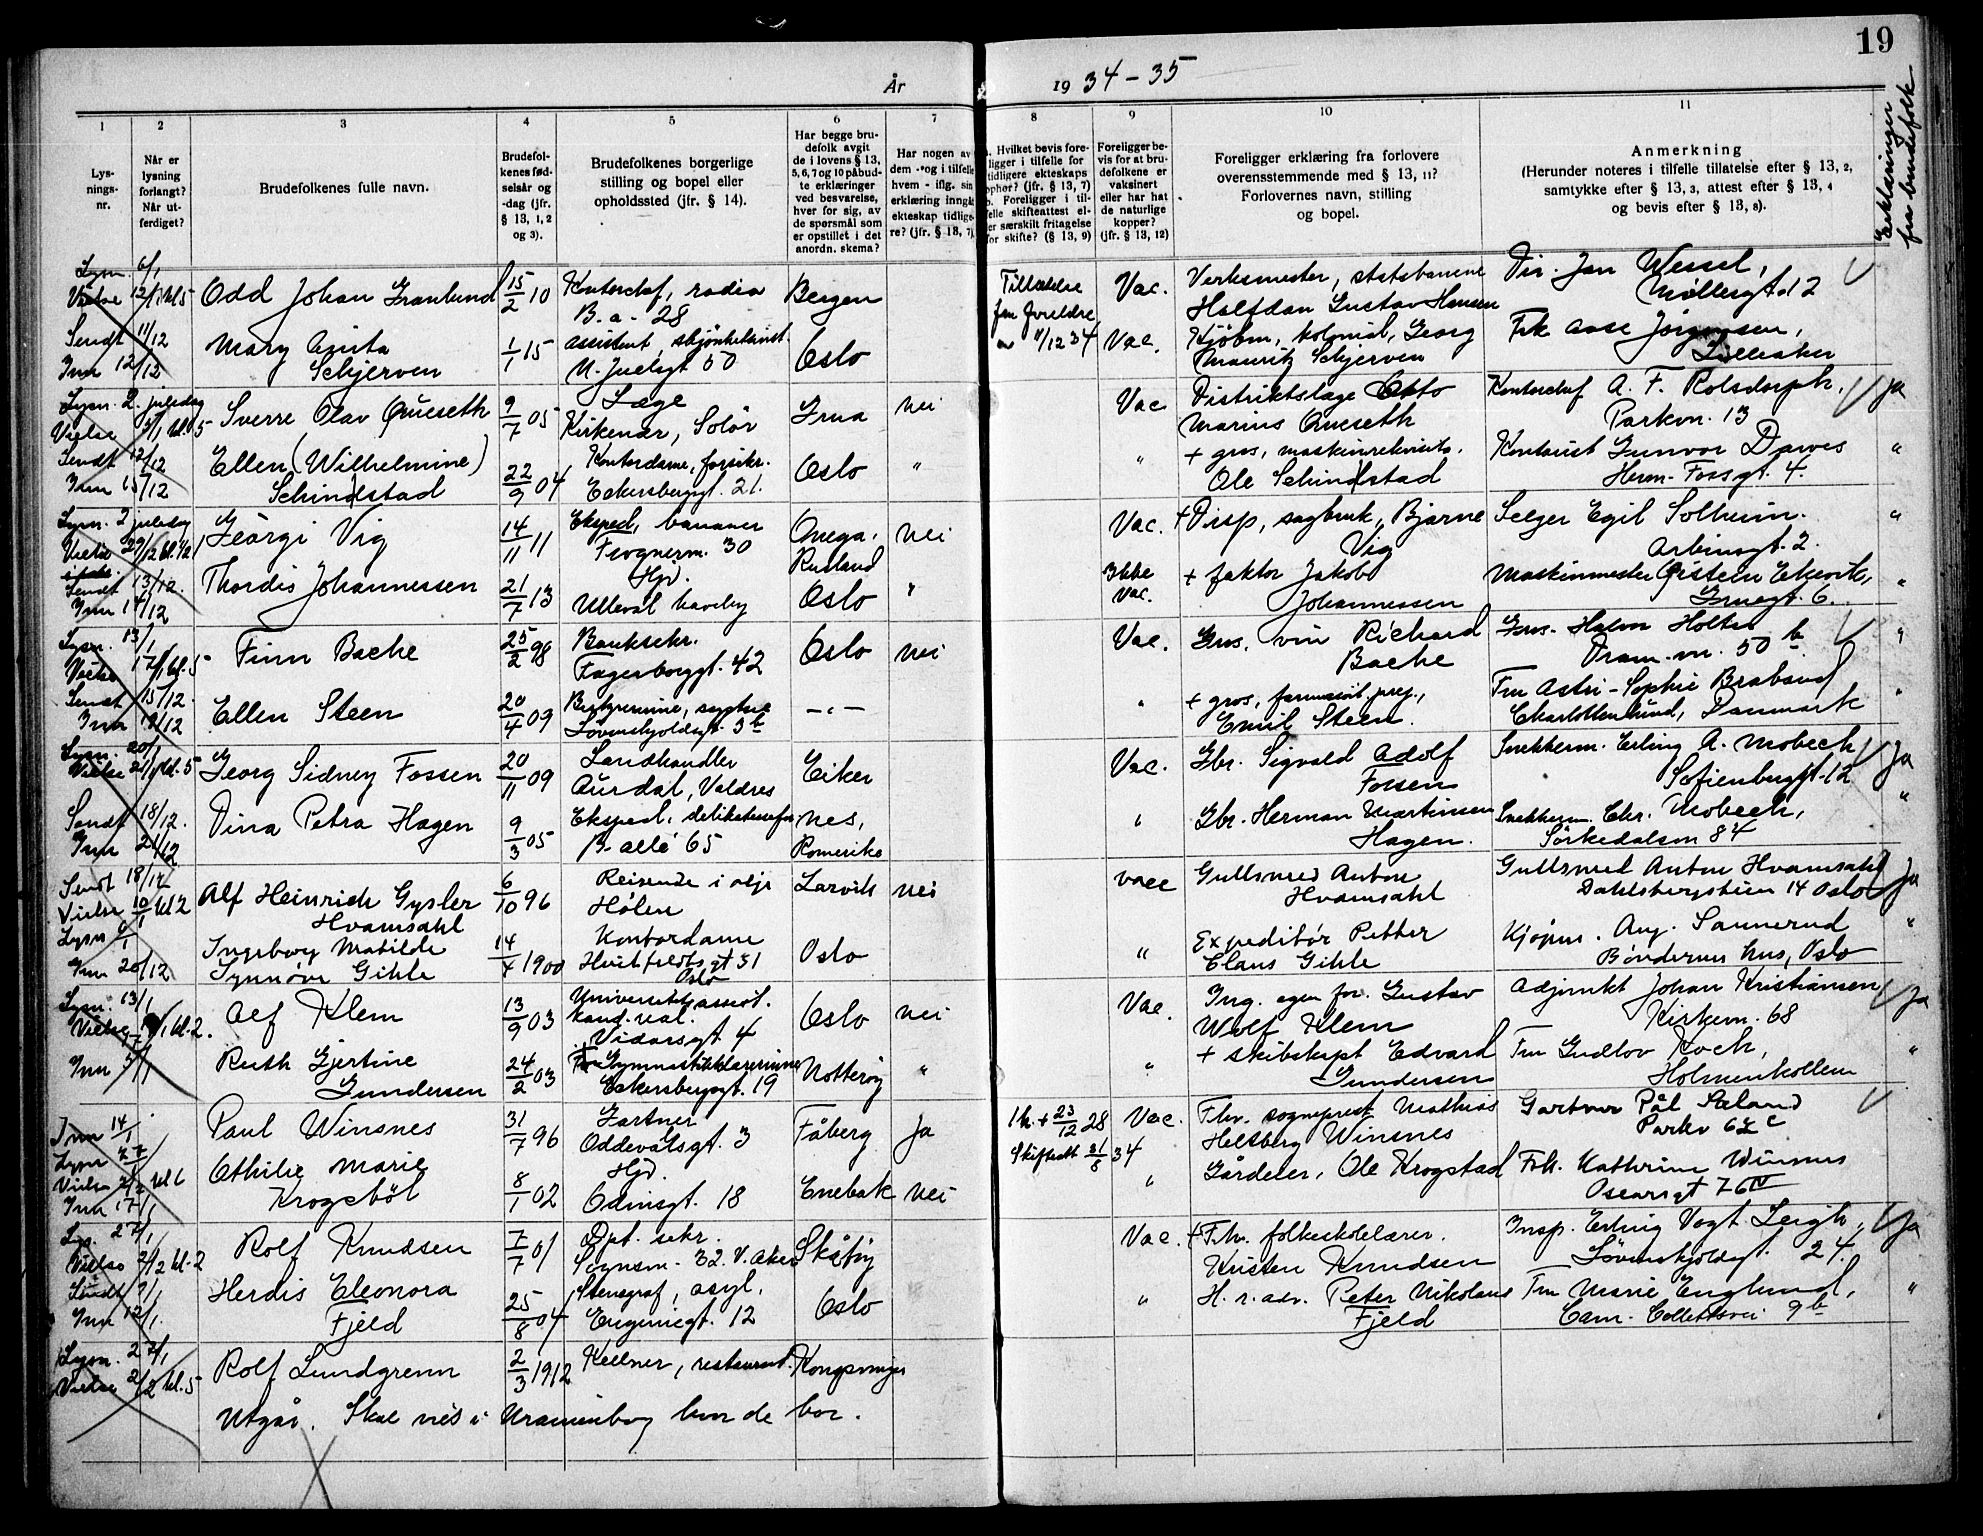 19
År
19 34-35
1
2
3
4
5
6
7
8
9
10
11
Lys-
nings-
nr.
Når er
lysning
forlangt?
Når ut-
ferdiget?
Brudefolkenes fulle navn.
Brudefol-
kenes fød-
selsår og
-dag (jfr.
§ 13, 1, 2
og 3).
Brudefolkenes borgerlige
stilling og bopel eller
opholdssted (jfr. § 14).
Har begge bru-
defolk avgit
de i lovens § 13,
5, 6, 7 og 10 påbud-
te erklæringer
ved besvarelse,
hver for sig, av
de spørsmål som
er opstillet i det
anordn. skema?
Har nogen av
dem - og i tilfelle
hvem - iflg. sin
erklæring inngått
ekteskap tidlige-
re? (jfr. § 13, 7)
Hvilket bevis fore-
ligger i tilfelle for
tidligere ekteskaps
ophør? (jfr. § 13, 7)
Foreligger i til-
felle skifteattest el-
er særskilt fritagelse
for skifte? (§ 13, 9)
Foreligger be-
vis for at bru-
defolkene er
vaksinert
eller har hat
de naturlige
kopper?
(jfr. § 13, 12)
Foreligger erklæring fra forlovere
overensstemmende med § 13, 11?
Forlovernes navn, stilling
og bopel.
Anmerkning
(Herunder noteres i tilfelle tillatelse efter § 13, 2,
samtykke efter § 13, 3, attest efter § 13, 4
og bevis efter § 13, 8).
Erklæringer
fra brudefolk
Lysn. 6/1
Vielse 12/1 kl 5
Odd Johan Granlund
15/2 10
Kontorchef, radio
B. a. 28
Bergen
Tillatelse
fra foreldre
11/12 34
Vac.
Verksmester, statsbanene
Halfdan Gustav Hansen
Dir. Jan Wessel,
Møllergt. 12
Sendt 11/12
Inn 12/12
Mary Anita
Schjerven
1/1 15
Assistent
N. Juelsgt 50
Oslo
Vac.
Kjøbm, kolonial, Georg
Mauritz Schjerven
Frk Aase Jørgensen,
Lilleaker
Lysn. 2. juledag
Vielse 5/1 kl. 5
Sverre Olav Queseth
9/7 05
Læge
Kirkenær, Solør
Grua
nei
Vac.
Distriktslæge Otto
Marius Queseth
Kontorchef A. F. Rolsdorph.
Parkvn. 13
Ja
Sendt 12/12
Inn 15/12
Ellen (Wilhelmine)
Schindstad
22/9 04
Kontordame, forsikr.
Eckersbergsgt. 21.
Oslo
"
"
+ gros, maskinrekvisita,
Ole Schindstad
Kontorist Gunvor Dawes
Herm. Fossgt. 4.
"
Lysn. 2 juledag
Vielse 29/12 kl. 1/2 1
Sendt 13/12.
Inn 14/12
Georgi Vig
14/11 11
Eksped, bananer
Frognerm. 30
Onega,
Rusland
nei
Vac.
+ Disp, sagbruk, Bjarne
Vig
Selger Egil Solheim.
Arbinsgt. 2.
"
Thordis Johannessen
21/7 13
Hjv.
Ulleval haveby
Oslo
"
Ikke
vac.
+ faktor Jakob
Johannessen
Maskinmester Øistein Ekevik,
Gruegt. 6.
"
Lysn. 13/1
Vielse 17/1 kl. 5
Finn Bache
25/2 98
Banksekr.
Fagerborggt. 42
Oslo
nei
Vac.
Gros. vin Richard
Bache
Gros. Halvor Holter
Dram. vn. 50 b
"
Sendt 15/12.
Inn 18/12
Ellen Steen
20/4 09
Løvenskjoldsgt. 3b
-"-
"
+ gros, farmasøit. prep.,
Emil Steen.
Fru Astri-Sophie Braband
Charlottenlund, Danmark
"
Lysn. 20/1
Vielse 21/1 kl. 5
Georg Sidney Fossen
20/11 09
Landhandler
Aurdal, Valdres
Eiker
Vac.
Gbr. Sigvald Adolf
Fossen
Snekkerm. Erling A. Mobech
Sofienberggt. 12
Ja
Sendt 18/12.
Inn 21/12
Dina Petra Hagen
9/3 05
Eksped, delikatessefor.
B. allé 65
Nes,
Romerike
"
Gbr. Herman Martinsen
Hagen.
Snekkerm. Chr. Mobech,
Sørkedalsvn 84
"
Sendt 18/12
Vielse 10/1 kl 2
Lysn 6/1
Inn 20/12
Alf Heinrich Gysler
Hvamsahl
6/10 96
Reisende i olje
Hølen
Larvik
nei
vacc
Gullsmed Anton
Hvamsahl
Gullsmed Anton Hvamsahl
Dahlsbergstien 14 Oslo
Ja
Ingeborg Matilde
Synnøve Gihle
14/4 1900
Kontordame
Huitfeldts gt 51
Oslo
Oslo
"
Expeditør Petter
Claus Gihle
Kjøpm. Aug. Sannerud
Bøndernes Hus, Oslo
"
Lysn. 13/1
Vielse 19/1 kl. 2.
Alf Klem
13/9 03
Universitetsassist.
kand. real.
Vidarsgt 4
Oslo
nei
Vac.
Ing. egen for. Gustav
Wolf Klem
Adjunkt Johan Kristiansen
Kirkevn. 68
Ja
Inn 5/1
Ruth Gjertine
Gundersen
24/2 03
Gymnastikklærerinne
Eckersbergsgt. 19
Nøtterøy
"
"
+ skibskapt Edvard
Gundersen
Fru Gudlov Koch,
Holmenkollen
"
Inn 14/1
Lysn 27/1
Vielse 2/2 kl 6
Inn 17/1
Paul Winsnes
31/7 96
Gartner
Oddevalsgt. 3
Fåberg
Ja
1 h. + 23/12 28
Skifteatt 31/8 34
Vac.
Fhv. sogneprest Mathias
Heltberg Winsnes
Gartner Pål Saland
Parkv 62 c
Othilie Marie
Krogsbøl
8/1 02
Hjv.
Odinsgt. 18
Enebak
nei
"
Gårdeier, Ole Krogstad
Frk. Kathrine Winsnes
Oscarsgt 76 IV
Ly. 27/1
Vielse 2/2 kl. 2
Rolf Knudsen
7/7 01
Dpt. sekr.
Sognsvn. 32. V. Aker
Skåtøy
Vac.
+ Fhv. folkeskolelærer.
Kristen Knudsen
Insp. Erling Vogt Leigh,
Løvenskjoldsgt. 24.
Ja
Sendt 9/1
Inn 12/1.
Herdis Eleonora
Fjeld
25/8 04
Stenograf, asyl,
Eugeniegt. 12
Oslo
"
H. r. adv. Peter Nikolaus
Fjeld
Fru Marie Englund,
Cam. Collettsvei 9b
"
Lysn. 27/1
Vielse 2/2 kl. 5
Rolf Lundgrenn
2/3 1912
Kellner, restaurant.
Kongsvinger
Utgår. Skal vies i Uranienborg hvor de bor.